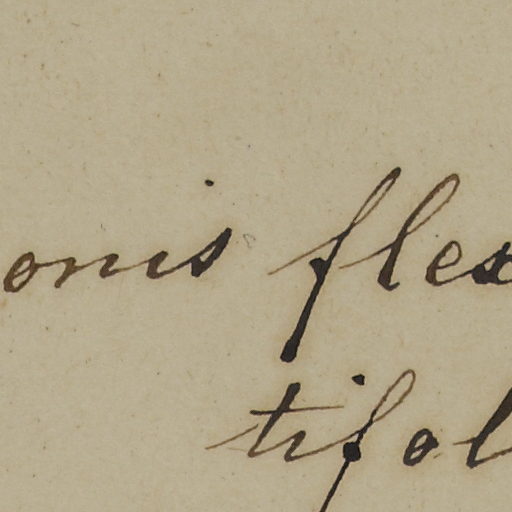 onis flex
tifol